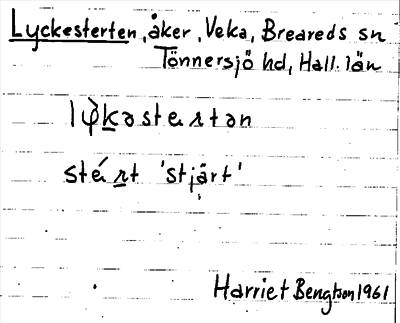 Lyckesterten, åker, Veka, Breareds sn
Tönnersjö hd, Hall. län
lỳkəstertən
stert 'stjärt'
Harriet Bengtson 1961